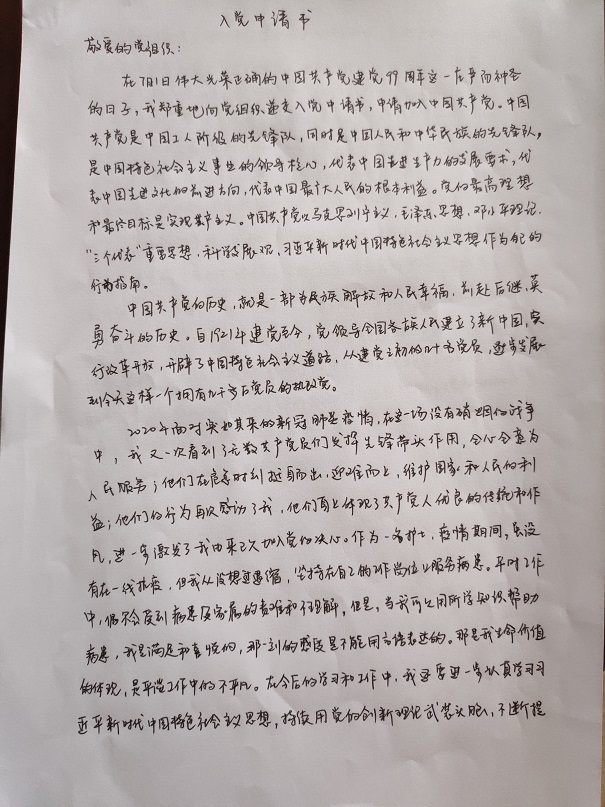 入党申请书
敬爱的党组织：
在7月1日伟大光荣正确的中国共产党建党99周年这一庄严而神圣
的日子，我郑重地向党组织递交入党申请书，申请加入中国共产党。中国
共产党是中国工人阶级的先锋队，同时是中国人民和中华民族的先锋队，
是中国特色社会主义事业的领导核心，代表中国先进生产力的发展要求，代
表中国先进文化的前进方向，代表中国最广大人民的根本利益。党的最高理想
和最终目标是实现共产主义。中国共产党以马克思列宁主义、毛泽东思想、邓小平理论、
“三个代表”重要思想、科学发展观、习近平新时代中国特色社会主义思想作为自己的
行动指南。
中国共产党的历史，就是一部为民族解放和人民幸福，前赴后继，英
勇奋斗的历史。自1921年建党至今，党领导全国各族人民建立了新中国，实
行改革开放，开辟了中国特色社会主义道路，从建党之初的几十名党员，逐步发展
到今天这样一个拥有几千万名党员的执政党。
2020年面对突如其来的新冠肺炎疫情，在这一场没有硝烟的战争
中，我又一次看到了无数共产党员们发挥先锋带头作用，全心全意为
人民服务；他们在危急时刻挺身而出，迎难而上，维护国家和人民的利
益；他们的行为再次感动了我，他们身上体现了共产党人优良的传统和作
风，进一步激发了我由来已久加入党的决心。作为一名护士，疫情期间，虽没
有在一线抗疫，但我从没想过退缩，坚持在自己的工作岗位上服务病患。平时工作
中，偶尔会受到病患及家属的责难和不理解，但是，当我可以用所学知识帮助
病患，我是满足和喜悦的，那一刻的感受是不能用言语表达的。那是我生命价值
的体现，是平淡工作中的不平凡。在今后的学习和工作中，我还要进一步认真学习习
近平新时代中国特色社会主义思想，持续用党的创新理论武装头脑，不断提